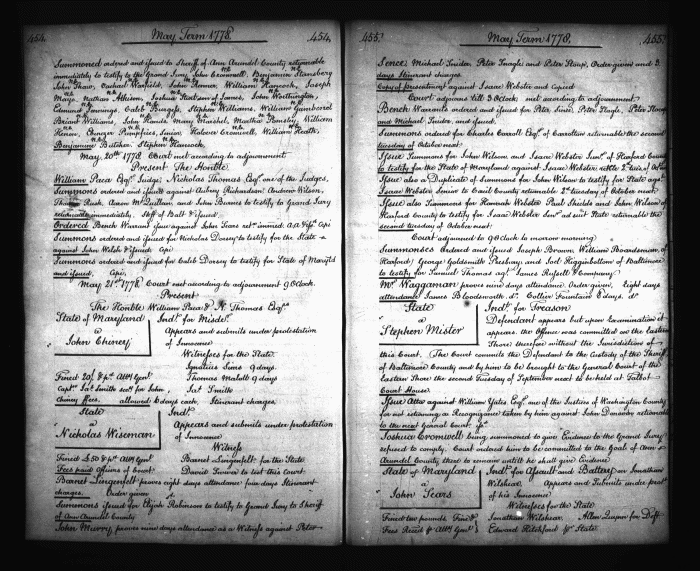 454.
May Term 1778
454.
Summoned ordered and issued to Sheriff of Ann Arundel County returnable
immediately to testify to the Grand Jury John Cromwell, Benjamin Stansbery
John Thaw, Caduct Warfield, John Kenner, William Hancock, Joseph
Mayo, Nathan Atkison, Joshua of James, John Worthington
Edmund Jennings, Caleb Burgess, Stephen Williams, William Gambrel
Briant Williams, John Mary Manshel, Martha Pamsley, William
Henow, Ebenezer Pumpfries, Senior, Cromwell, William Heath,
Benjamine Butcher. Stephen Hancock,
May 20th 1778 Court met according to adjournment
Present The Honble
William Paca Esqr. Judge, Nicholas Thomas Esqr. one of the Judges,
Summons ordered and issued against Aubrey Richardson, Andrew Wilson,
Thomas Rusk, Aaron McQuillan, and John Barnes to testify to Grand Jury
immediately.
Ordered Bench Warrant issue against John Sears ret. immed.
Summons ordered and issued for Nicholas Dorsey to testify for the State
against John Welch & issued
Summons ordered and issued for Caleb Dorsey to testify for State of Maryld
and issued.
May 21st 1778 Court met according to adjournment 9 OClock.
Present
The Honble William Paca & N. Thomas Esqrs.
State of Maryland
a
John Cheney
Indt. for Misder.
Appears and submits under protestation
of Innocence
Witnesses for the State
Ignatius Sims 9 days
Thomas Mabott 9 days
Jas. Smith
Fined 20/. & pt. Atty Genl
Captn. Jas. Smith secy. for John
Cheney ffees. allowed 6 days each, Itinerant charges.
State
a
Nicholas Wiseman
Indt.
Appears and submits under protestation
of Innocence
Witness
Barnet Lingenfelt for the State
David to this Court.
Fined £50 & pt Atty Genl
Fees paid Officers of Court.
Barnet Lingenfelt proves eight days attendance four days Itinerant
charges. Order given
Summons issued for Elijah Robinson to testify to Grand Jury to Sheriff
of Ann Arundel County
John Murry proves nine days attendance as a Witness against Peter
455.
May Term 1778.
455.
Michael Snider, Peter and Peter Order given and 3
days Itinerant charges
Copy of presentment against Isaac Webster and Copied
Court adjourns till 3 OClock, met according to adjournment
Bench Warrants ordered and issued for Peter Peter Peter
and Michael Snider, and issued.
Summons ordered for Charles Carroll Esqr. of Carrollton returnable the second
tuesday of October next.
Issue Summons for John Wilson and Isaac Webster Junr. of Harford County
to testify for the State of Maryland against Isaac Webster retble 2d. tues of Octr.
Issue also a Duplicate of Summons for John Wilson to testify for State agt.
Isaac Webster Senior to Cecil County returnable 2d. tuesday of October next.
Issue also Summons for Hannah Webster Paul Shields and John Wilson of
Harford County to testify for Isaac Webster Senr. ad sect State returnable the
second tuesday of October next:
Court adjourned to 9 OClock to morrow morning
Summonses Ordered and issued Joseph Brown, William Boardsman, of
Harford, George Goldsmith Presbury, and Joel Higginbottom of Baltimore
to testify for Samuel Thomas agt. James Russell & Company
Mr. Waggaman proves nine days attendance Order given. Eight days
attendance James Bloodsworth do. Collier Fountain 8 days. do.
State
a
Stephen Mister
Indt. for Treason
Defendant appears but upon Examination it
appears the Offence was committed on the Eastern
Shore therefore without the Jurisdiction of
this Court. The Court commits the Defendant to the Custody of the Sheriff
of Baltimore County and by him to be brought to the General Court of the
Eastern Shore the second Tuesday of September next to be held at Talbot
Court House
Issue Atta against William Yates Esqr. one of the Justices of Washington County
for not returning a Recognizance taken by him against John returnable
to the next General Court.
Joshua Cromwell being summoned to give Evidence to the Grand Jury
refused to comply. Court ordered him to be committed to the Goal of Ann
Arundel County there to remain untill he shall give Evidence.
State of Maryland
a
John Sears
Indt. for Assault and Battery on Jonathan
Wilshear. Appears and Submits under protn.
of his Innocence
Witnesses for the State
Jonathan Wilshear. Allen Quynn for Deft.
Edward for State.
Fined two pounds. Fine &
Fees Receid & Atty Genl